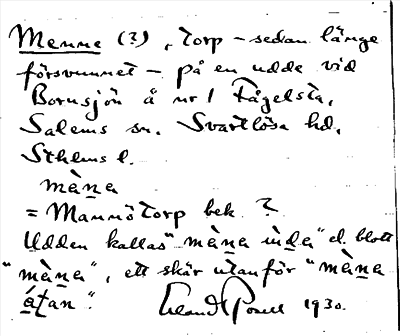 Menne (3), torp – sedan länge
försvunnet – på en udde vid
Bornsjön å nr 1 Fågelsta,
Salems sn. Svartlösa hd.
Sthlms l.
màṉa
= Mannötorp bek. ?
Udden kallas "màṉa ùḏa" el. blott
"màṉa", ett skär utanför "màṉa
áṯan".
1930.